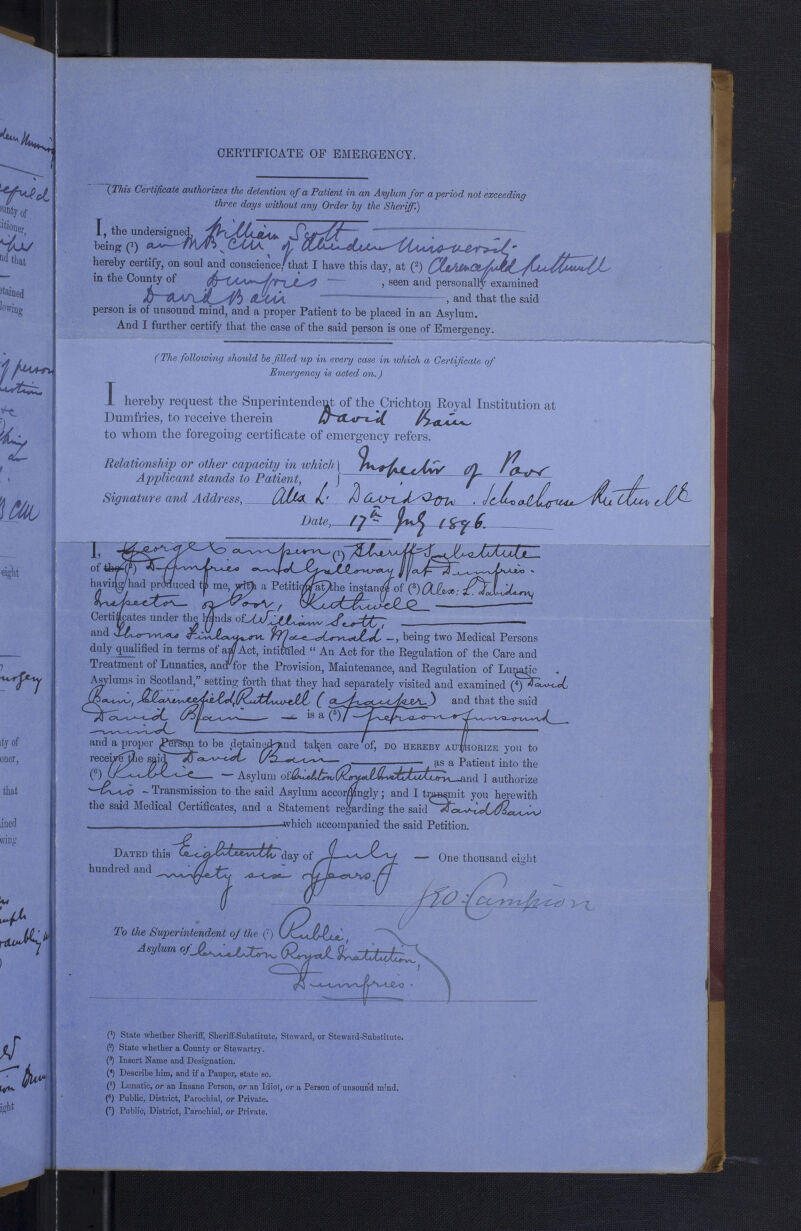 CERTIFICATE OF EMERGENCY.
(This Certificate authorizes the detention of a Patient in an Asylum for a period not exceeding
three days without any Order by the Sheriff.)
I, the undersigned, William Scott
being (1) an M.B. C.M. of Aberdeen University
hereby certify, on soul and conscience, that I have this day, at (2) Clarencefield Ruthwell
in the County of Dumfries, seen and personally examined
David Bain, and that the said
person is of unsound mind, and a proper Patient to be placed in an Asylum.
And I further certify that the case of the said person is one of Emergency.
(The following should be filled up in every case in which a Certificate of
Emergency is acted on.)
I hereby request the Superintendent of the Crichton Royal Institution at
Dumfries, to receive therein David Bain
to whom the foregoing certificate of emergency refers.
Relationship or other capacity in which
Applicant stands to Patient, } Inspector of Poor
Signature and Address, Alex L. Davidson. Schoolhouse Ruthwell
Date, 17th July 1896.
I, George Campion (1) Sheriff Substitute
of the (2) Dumfries and Galloway at Dumfries.
having had produced to me, with a Petition at the instance of (3) Alex: L. Davidson,
Inspector of Poor, Ruthwell
Certificates under the hands of William Scott,
and Thomas Finlayson Macdonald —, being two Medical Persons
duly qualified in terms of an Act, intituled “An Act for the Regulation of the Care and
Treatment of Lunatics, and for the Provision, Maintenance, and Regulation of Lunatic
Asylums in Scotland,” setting forth that they had separately visited and examined (4) David
Bain, Clarencefield, Ruthwell (a pauper) and that the said
David Bain — is a (5) person of unsound
mind
and a proper Person to be detained and taken care of, DO HEREBY AUTHORIZE you to
receive the said David Bain as a Patient into the
(6) Public — Asylum of Crichton Royal Institution and I authorize
his - Transmission to the said Asylum accordingly; and I transmit you herewith
the said Medical Certificates, and a Statement regarding the said David Bain
which accompanied the said Petition.
DATED this Eighteenth day of July — One thousand eight
hundred and ninety six years.
Geo: Campion
To the Superintendent of the (7) Public,
Asylum of Crichton Royal Institution,
Dumfries.
(1) State whether Sheriff, Sheriff-Substitute, Steward, or Steward-Substitute.
(2) State whether a County or Stewartry.
(3) Insert Name and Designation.
(4) Describe him, and if a Pauper, state so.
(5) Lunatic, or an Insane Person, or an Idiot, or a Person of unsound mind.
(6) Public, District, Parochial, or Private.
(7) Public, District, Parochial, or Private.